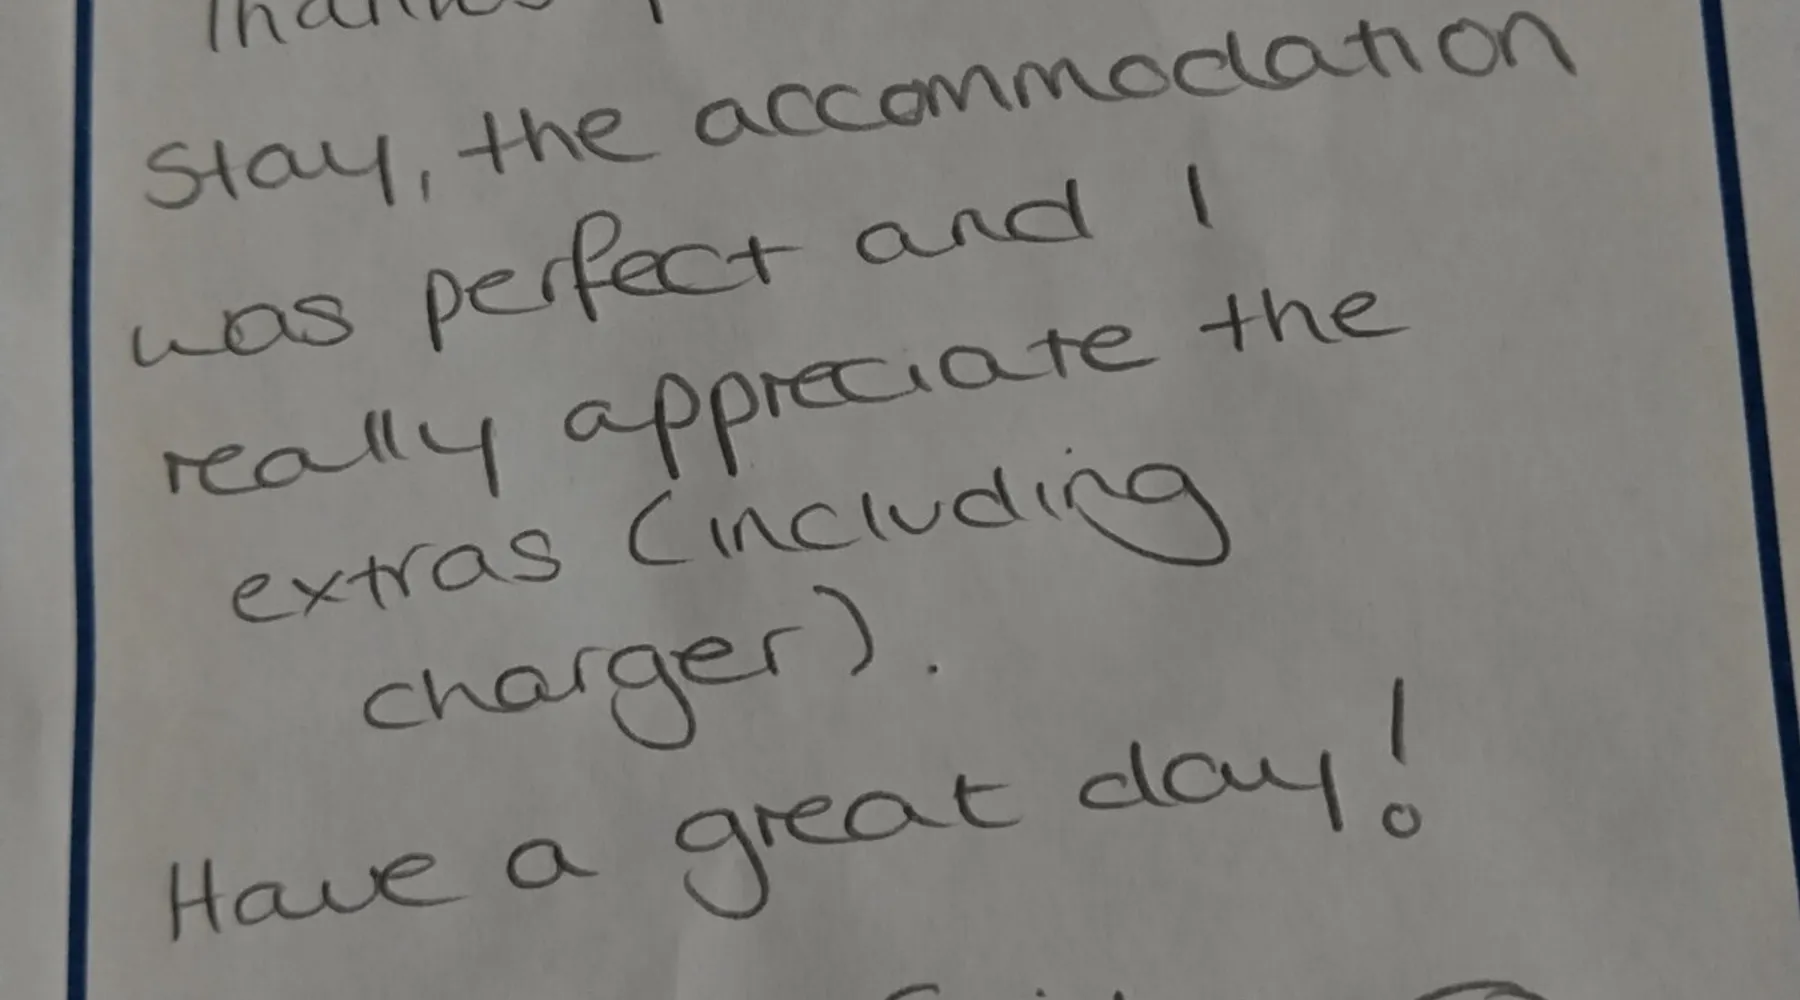 Thanks
Stay, the accommodation
was perfect and I
really appreciate the
extras (including
charger).
Have a great day!